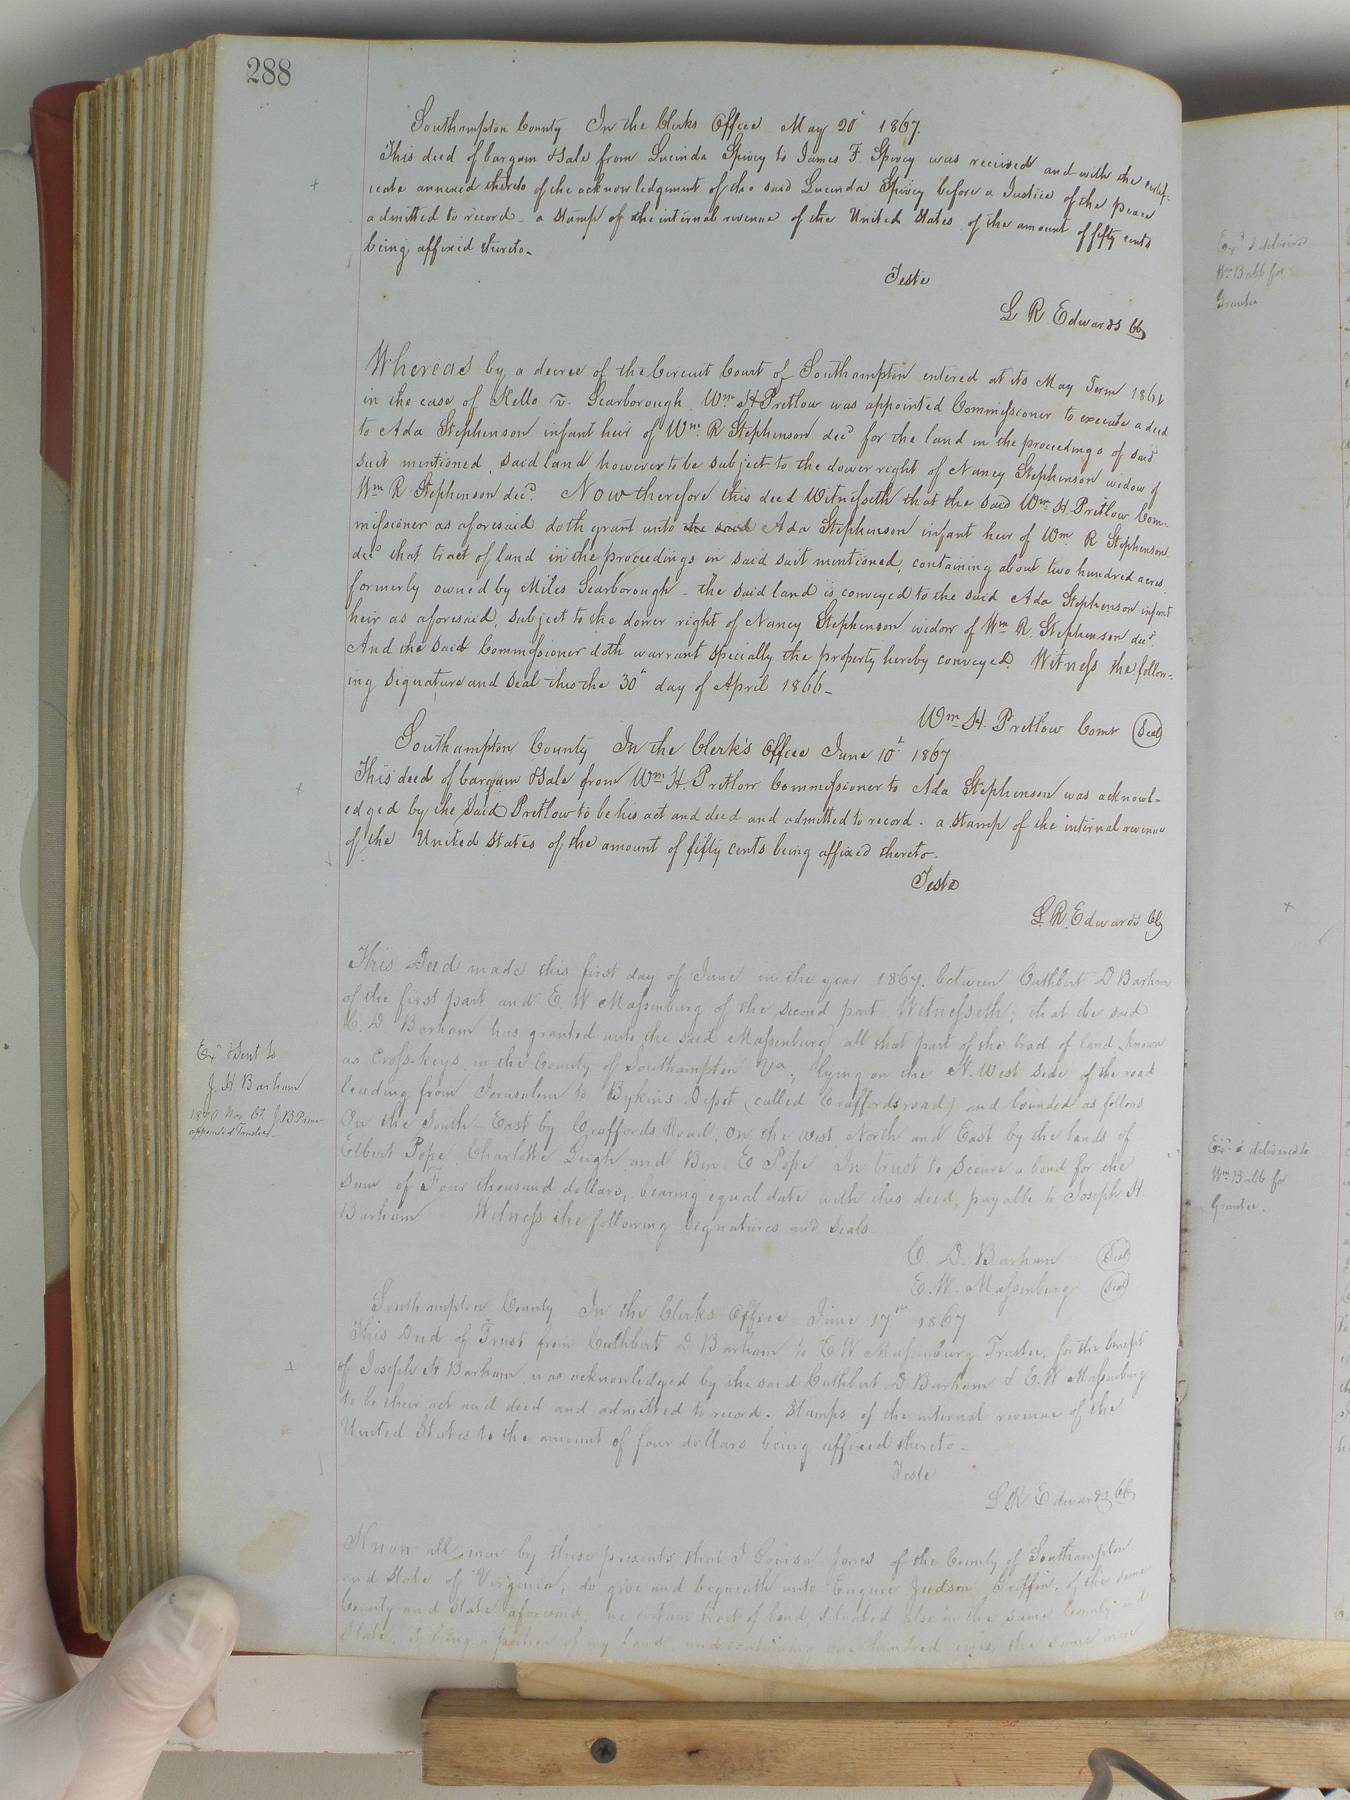 288
Southampton County In the Clerks Office May 20th 1867.
This deed of bargain & sale from Lucinda Spivey to James F Spivey was received and with the certifi-
cate annexed thereto of the acknowledgment of the said Lucinda Spivey before a Justice of the peace
admitted to record - a stamp of the internal revenue of the United States of the amount of fifty cents
being affixed thereto -
Teste
L R Edwards Clk
Whereas by a decree of the Circuit Court of Southampton entered at its May Term 1861
in the case of Kello v. Scarborough Wm H Pretlow was appointed Commissioner to execute a deed
to Ada Stephenson infant heir of Wm R Stephenson decd for the land in the proceedings of said
suit mentioned, said land however to be subject to the dower right of Nancy Stephenson widow of
Wm R Stephenson decd. Now therefore this deed Witnesseth that the said Wm H Pretlow Com-
missioner as aforesaid doth grant unto the said Ada Stephenson infant heir of Wm R Stephenson
decd that tract of land in the proceedings in said suit mentioned, containing about two hundred acres
formerly owned by Miles Scarborough - the said land is conveyed to the said Ada Stephenson infant
heir as aforesaid, subject to the dower right of Nancy Stephenson widow of Wm R. Stephenson decd
And the said Commissioner doth warrant specially the property hereby conveyed. Witness the follow-
ing signature and seal this the 30th day of April 1866 -
Wm H. Pretlow Comr Seal
Southampton County In the Clerk's Office June 10th 1867
This deed of bargain & sale from Wm H. Pretlow Commissioner to Ada Stephenson was acknowl-
edged by the said Pretlow to be his act and deed and admitted to record - a stamp of the internal revenue
of the United States of the amount of fifty cents being affixed thereto -
Teste
L. R. Edwards Clk
This Deed made this first day of June in the year 1867. between Cuthbert D Barham
of the first part and E. W Massenburg of the second part Witnesseth, that the said
C. D Barham has granted unto the said Massenburg all that part of the tract of land known
as Cross-keys in the County of Southampton Va, lying on the N. West side of the road
leading from Jerusalem to Bykins Depot (called Craffords road) and bounded as follows
On the South-East by Craffords Road, On the west North and East by the lands of
Elbert Pope Charlotte Leigh and Ben E Pope In trust to secure a bond for the
sum of Four thousand dollars, bearing equal date with this deed, payable to Joseph H.
Barham Witness the following signatures and seals
C. D. Barham Seal
E. W. Massenburg Seal
Southampton County In the Clerks Office June 17th 1867
This Deed of Trust from Cuthbert D Barham to E W Massenburg Trustee, for the benefit
of Joseph H Barham, was acknowledged by the said Cuthbert D Barham & E. W Massenburg
to be their act and deed and admitted to record. Stamps of the internal revenue of the
United States to the amount of four dollars being affixed thereto -
Teste
L R Edwards Clk
Know all men by these presents that I Louisa Jones of the County of Southampton
and State of Virginia, do give and bequeath unto Eugene Judson Griffin, of the same
County and State aforesaid, one certain tract of land situated also in the same County and
State. It being a portion of my land, and containing one hundred acres, the same more
Exd & sent to
J. H Barham
appointed Trustee
Exd & delivered
Wm Babb for
Grantee
Exd & delivered to
Wm Babb for
Grantee.